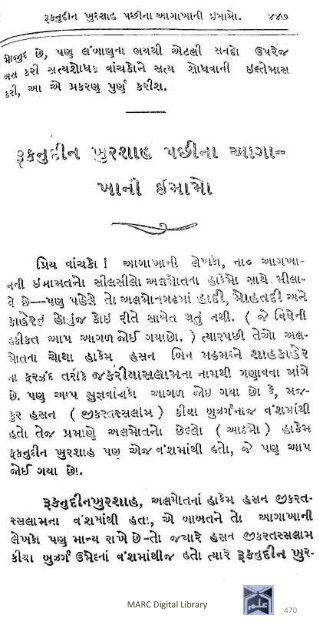 રૂકનુદીન ખુરશાહ પછીના આગાખાની ઈમામો. ૪૪૭
મોજુદ છે, પણ લંબાણના ભયથી એટલી સનદો ઉપરજ
બસ કરી સત્યશોધક વાંચકોને સત્ય શોધવાની ઈલ્તેમાસ
કરી, આ એ પ્રકરણ પુર્ણ કરીશ.
રૂકનુદીન ખુરશાહ પછીના આગા=
ખાની ઈમામો
પ્રિય વાંચકો ! આગાખાની લેખકો, ના૦ આગાખા-
નની ઈમામતનો સીલસીલો અલમોતના હાકેમો સાથે મીલા-
વે છે—પણ પહેલે તો અલમોતગઢમાં હાદી, મોહતદી અને
કાહેરનું હોવુંજ કોઈ રીતે સાબેત થતું નથી. ( જે વિષેની
હકીકત આપ આગળ જોઈ ગયાછો. ) ત્યારપછી તેઓ અલ-
મોતના ચોથા હાકેમ હસન બિન મહમદને શાહકાહેર
ના ફરઝંદ તરીકે જકરીયાસલામના નામથી ગણાવવા માંગે
છે. પણ આપ સુજ્ઞવાંચકો આગળ જોઈ ગયા છો કે, મજ-
કુર હસન ( જીકરતરસલામ ) કીયા બુઝર્ગનાજ વંશમાંથી
હતો તેજ પ્રમાણે અલમોતનો છેલ્લો ( આઠમો ) હાકેમ
રૂકનુદીન ખુરશાહ પણ એજ વંશમાંથી હતો, જે પણ આપ
જોઈ ગયા છો.
રૂકનુદીનખુરશાહ, અલમોતનાં હાકેમ હસન જીકરત-
રસલામના વંશમાંથી હતા, એ બાબતને તો આગાખાની
લેખકો પણ માન્ય રાખે છે-તો જ્યારે હસન જીકરતરસલામ
કીયા બુઝર્ગ ઉમેદનાં વંશમાંથીજ હતો ત્યારે રૂકનુદીન ખુર-
MARC Digital Library
470